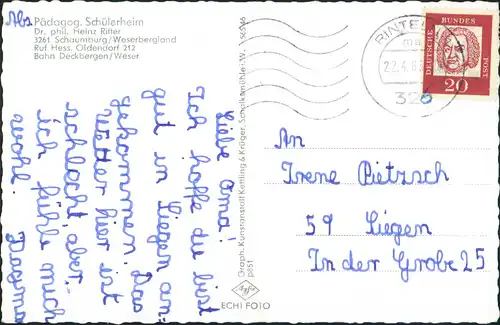 Abs.
Pädagog. Schülerheim
Dr. phil. Heinz Ritter
3261 Schaumburg/Weserbergland
Ruf Hess. Oldendorf 212
Bahn Deckbergen/Weser
Liebe Oma!
Ich hoffe du bist
gut in Siegen an-
gekommen. Das
Wetter hier ist
schlecht, aber
ich fühle mich
wohl.
Graph. Kunstanstalt Kettling & Krüger, Schalksmühle i. W.
p851
Agfa
ECHT FOTO
RINTE
22.4.6
326
DEUTSCHE BUNDES POST
20
An
Irene Pietzsch
59 Siegen
In der Grobe 25